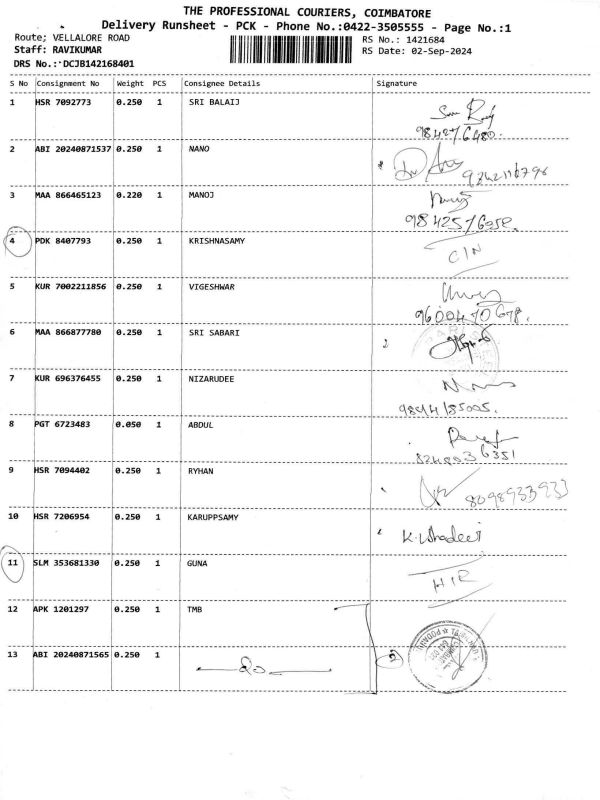 THE PROFESSIONAL COURIERS, COIMBATORE
Delivery Runsheet - PCK - Phone No.:0422-3505555 - Page No.:1
Route; VELLALORE ROAD RS No.: 1421684
Staff: RAVIKUMAR RS Date: 02-Sep-2024
DRS No.: DCJB142168401
S No Consignment No Weight PCS Consignee Details Signature
1 HSR 7092773 0.250 1 SRI BALAIJ
2 ABI 20240871537 0.250 1 NANO
3 MAA 866465123 0.220 1 MANOJ
4 PDK 8407793 0.250 1 KRISHNASAMY C/N
5 KUR 7002211856 0.250 1 VIGESHWAR
6 MAA 866877780 0.250 1 SRI SABARI
7 KUR 696376455 0.250 1 NIZARUDEE
8 PGT 6723483 0.050 1 ABDUL
9 HSR 7094402 0.250 1 RYHAN
8098933933
10 HSR 7206954 0.250 1 KARUPPSAMY
11 SLM 353681330 0.250 1 GUNA
12 APK 1201297 0.250 1 TMB
13 ABI 20240871565 0.250 1